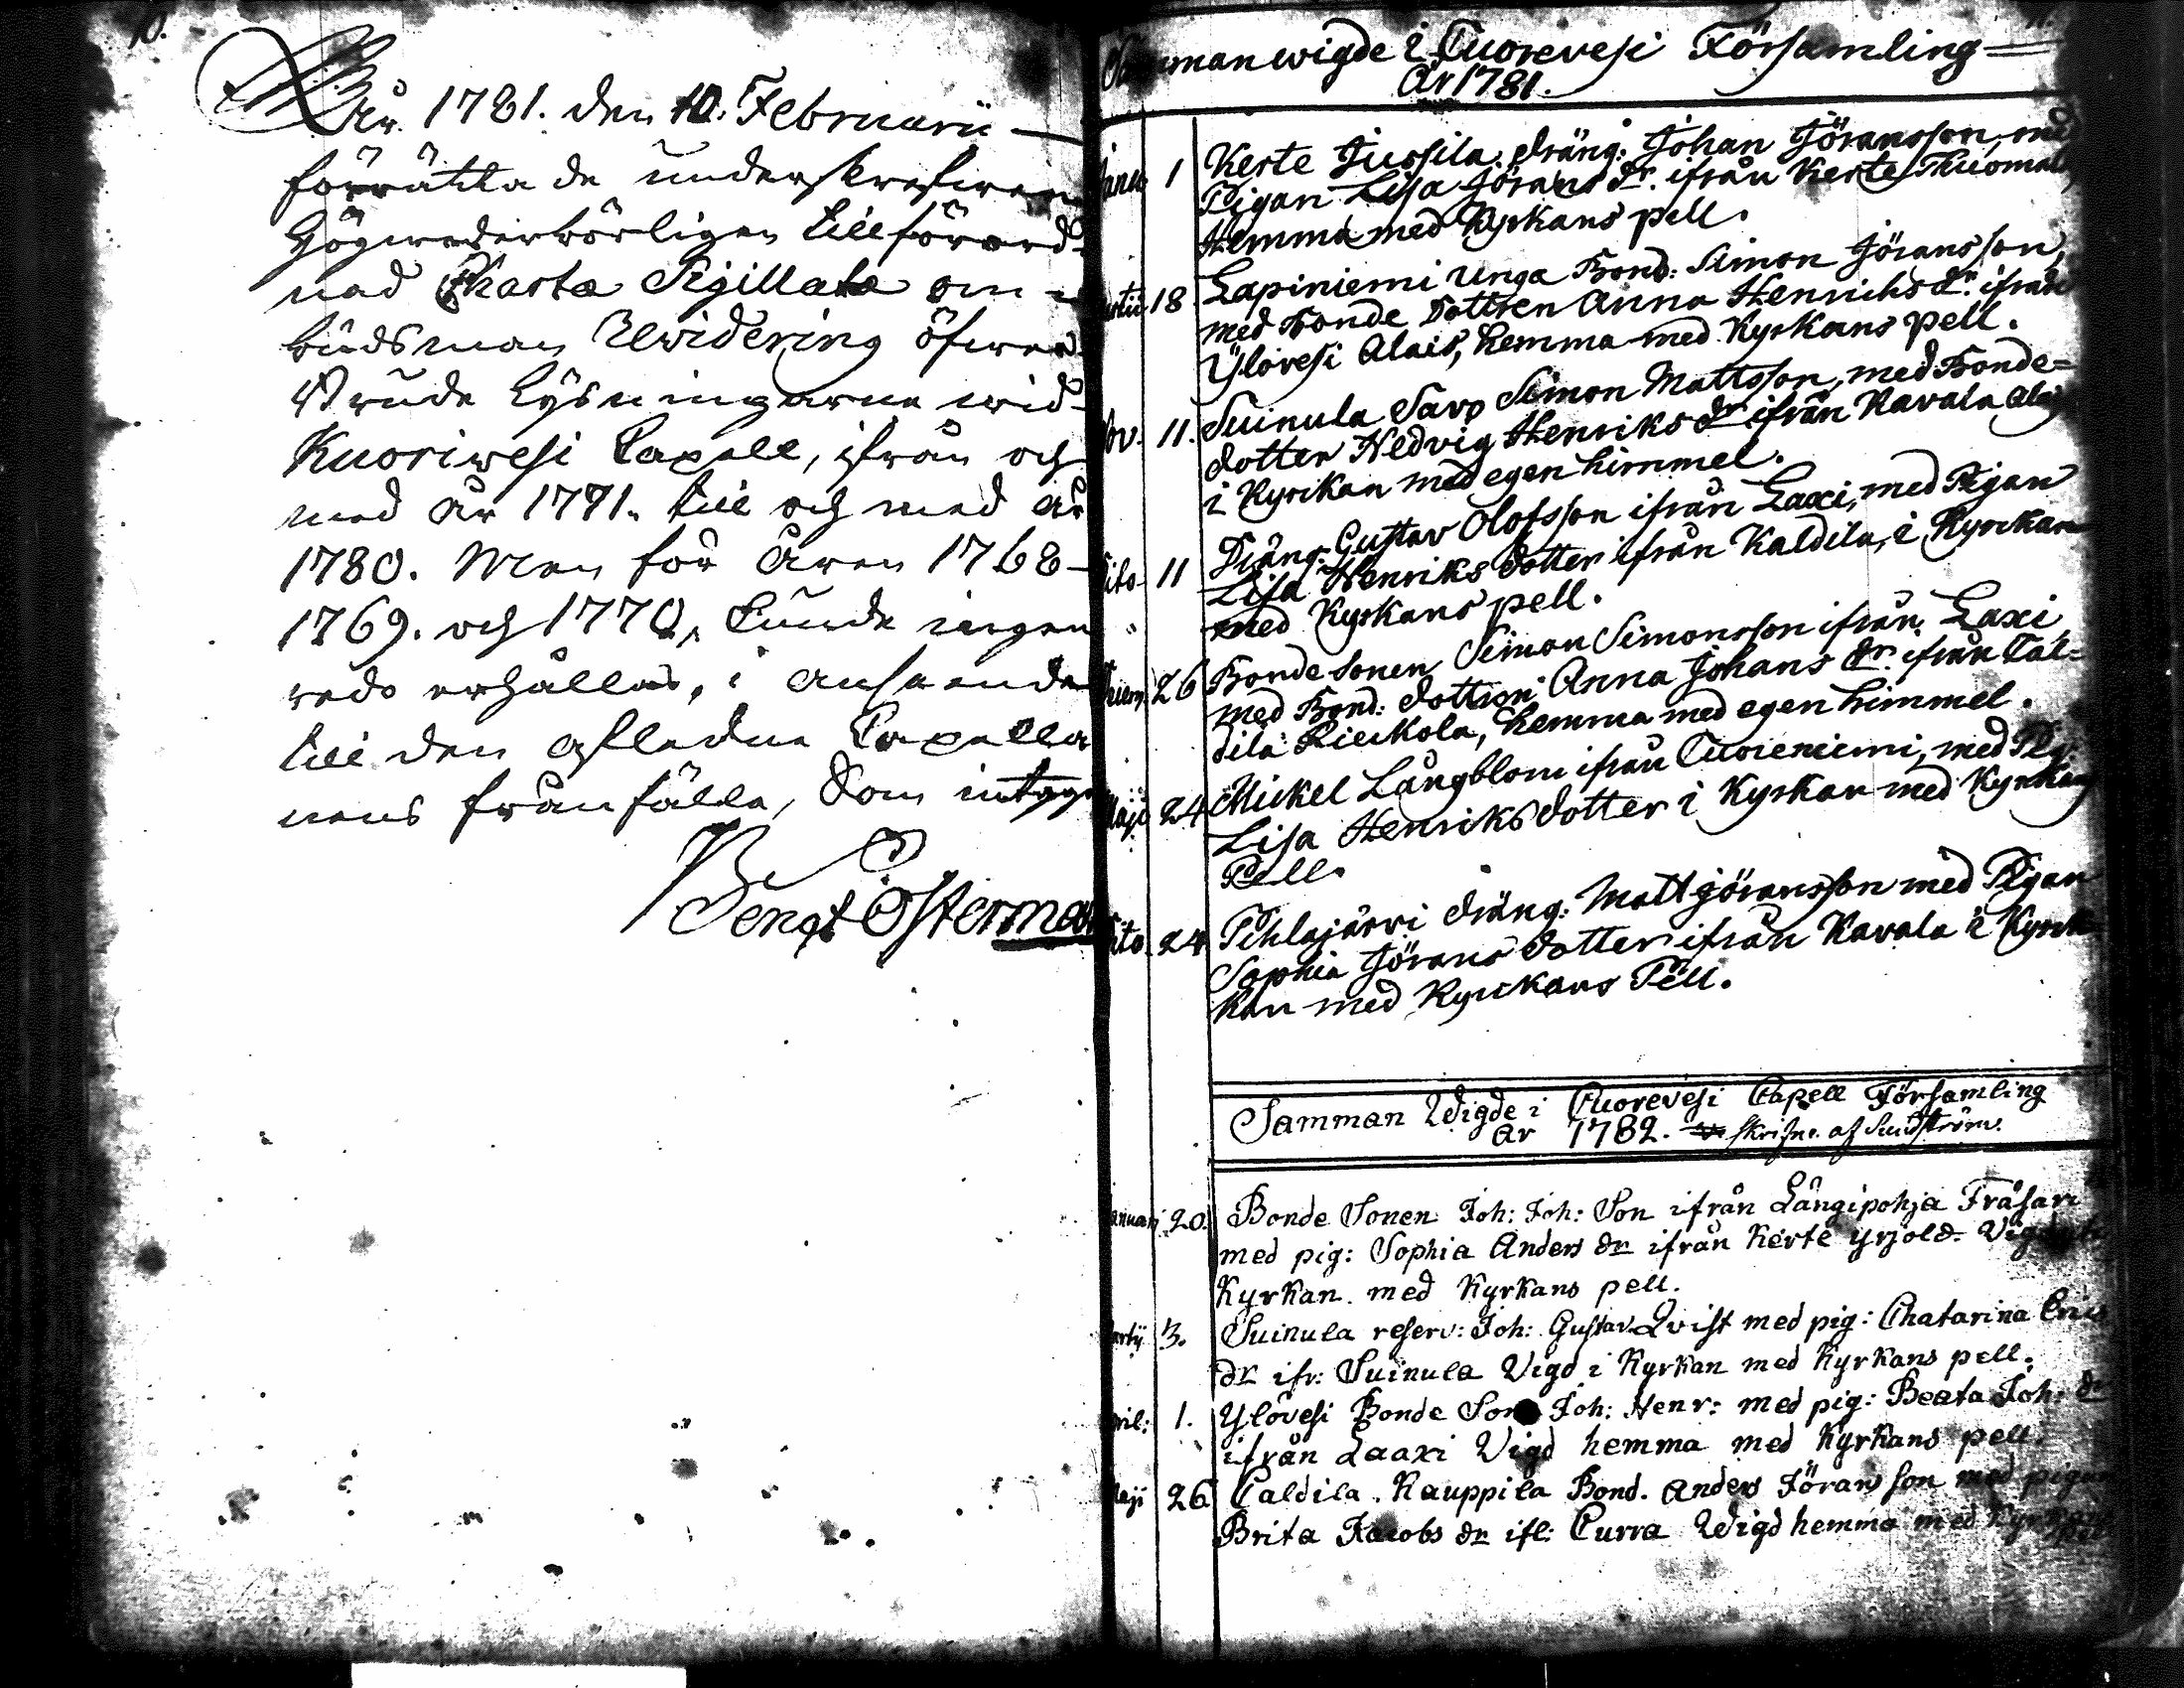 10.
År 1781. den 10. Februarii
förrättade underskrefwen
Högwederbörligen tillförord-
nad Charta Sigillatæ om-
budsman Uwidering öfwer
Brude Lysningarne wid
Kuoriwesi Capell, ifrån och
med år 1771. till och med år
1780. Men för åren 1768-
1769. och 1770, kunde ingen
redo erhållas, i anseende
till den afledne Capella
nens frånfälle, Som intyga
Bengt Österman
11.
Samman wigde i Cuorevesi Församling
År 1781.
Janu 1 Kerte Jussila, dräng: Johan Jöransson, med
Pigan Lisa Jörans dr. ifrån Kerte Thuomala
Hemma med Kyrkans pell.
Martii 18 Lapiniemi Unga Bond: Simon Jöransson,
med Bonde Dottren Anna Henrichs dr. ifrån
Ylövesi Alais, hemma med Kyrkans pell.
11. Suinula Savo Simon Mattsson, med Bonde-
dotter Hedvig Henriks dr ifrån Kavala Ala
i Kyrkan med egen himmel.
Dito 11 Dräng: Gustav Olofsson ifrån Laxi, med Pigan
Lisa Henriks dotter ifrån Kaldila, i Kyrckan
med Kyrkans pell.
26 Bonde Sonen Simon Simonsson ifrån Laxi
med Bond: dottren Anna Johans dr. ifrån Cal-
dila Rieckola, hemma med egen himmel.
Maji 24 Mickel Långblom ifrån Cuoreniemi, med Pig:
Lisa Henriksdotter i Kyrkan med Kyrckans
Pell.
Dito 24 Pihlajärvi dräng: Matt jöransson med Pigan
Sophia Jörans dotter ifrån Kavala i Kyrck-
kan med Kyrckans Pell.
Samman Wigde i Cuorevesi Capell Församling
år 1782. skrifne af Sundström.
Januari 20. Bonde Sonen Joh: Joh: Son ifrån Långipohja Fräsari
med pig: Sophia Anders dr ifrån Kerte yrjold. Vigd
Kyrkan med Kyrkans pell.
Martij 3. Suinula reserv: Joh: Gustav Qvist med pig: Chatarina Erics
dr ifr: Suinula Vigd i Kyrkan med Kyrkans pell.
April: 1. Ylövesi Bonde Son Joh: Henr: med pig: Beata Joh: dr
ifrån Laaxi Vigd hemma med Kyrkans pell.
Maji 26 Caldila Kauppila Bond. Anders Jöransson med pigan
Brita Jacobs dr ifl: Curra Wigd hemma med Kyrkans
pell